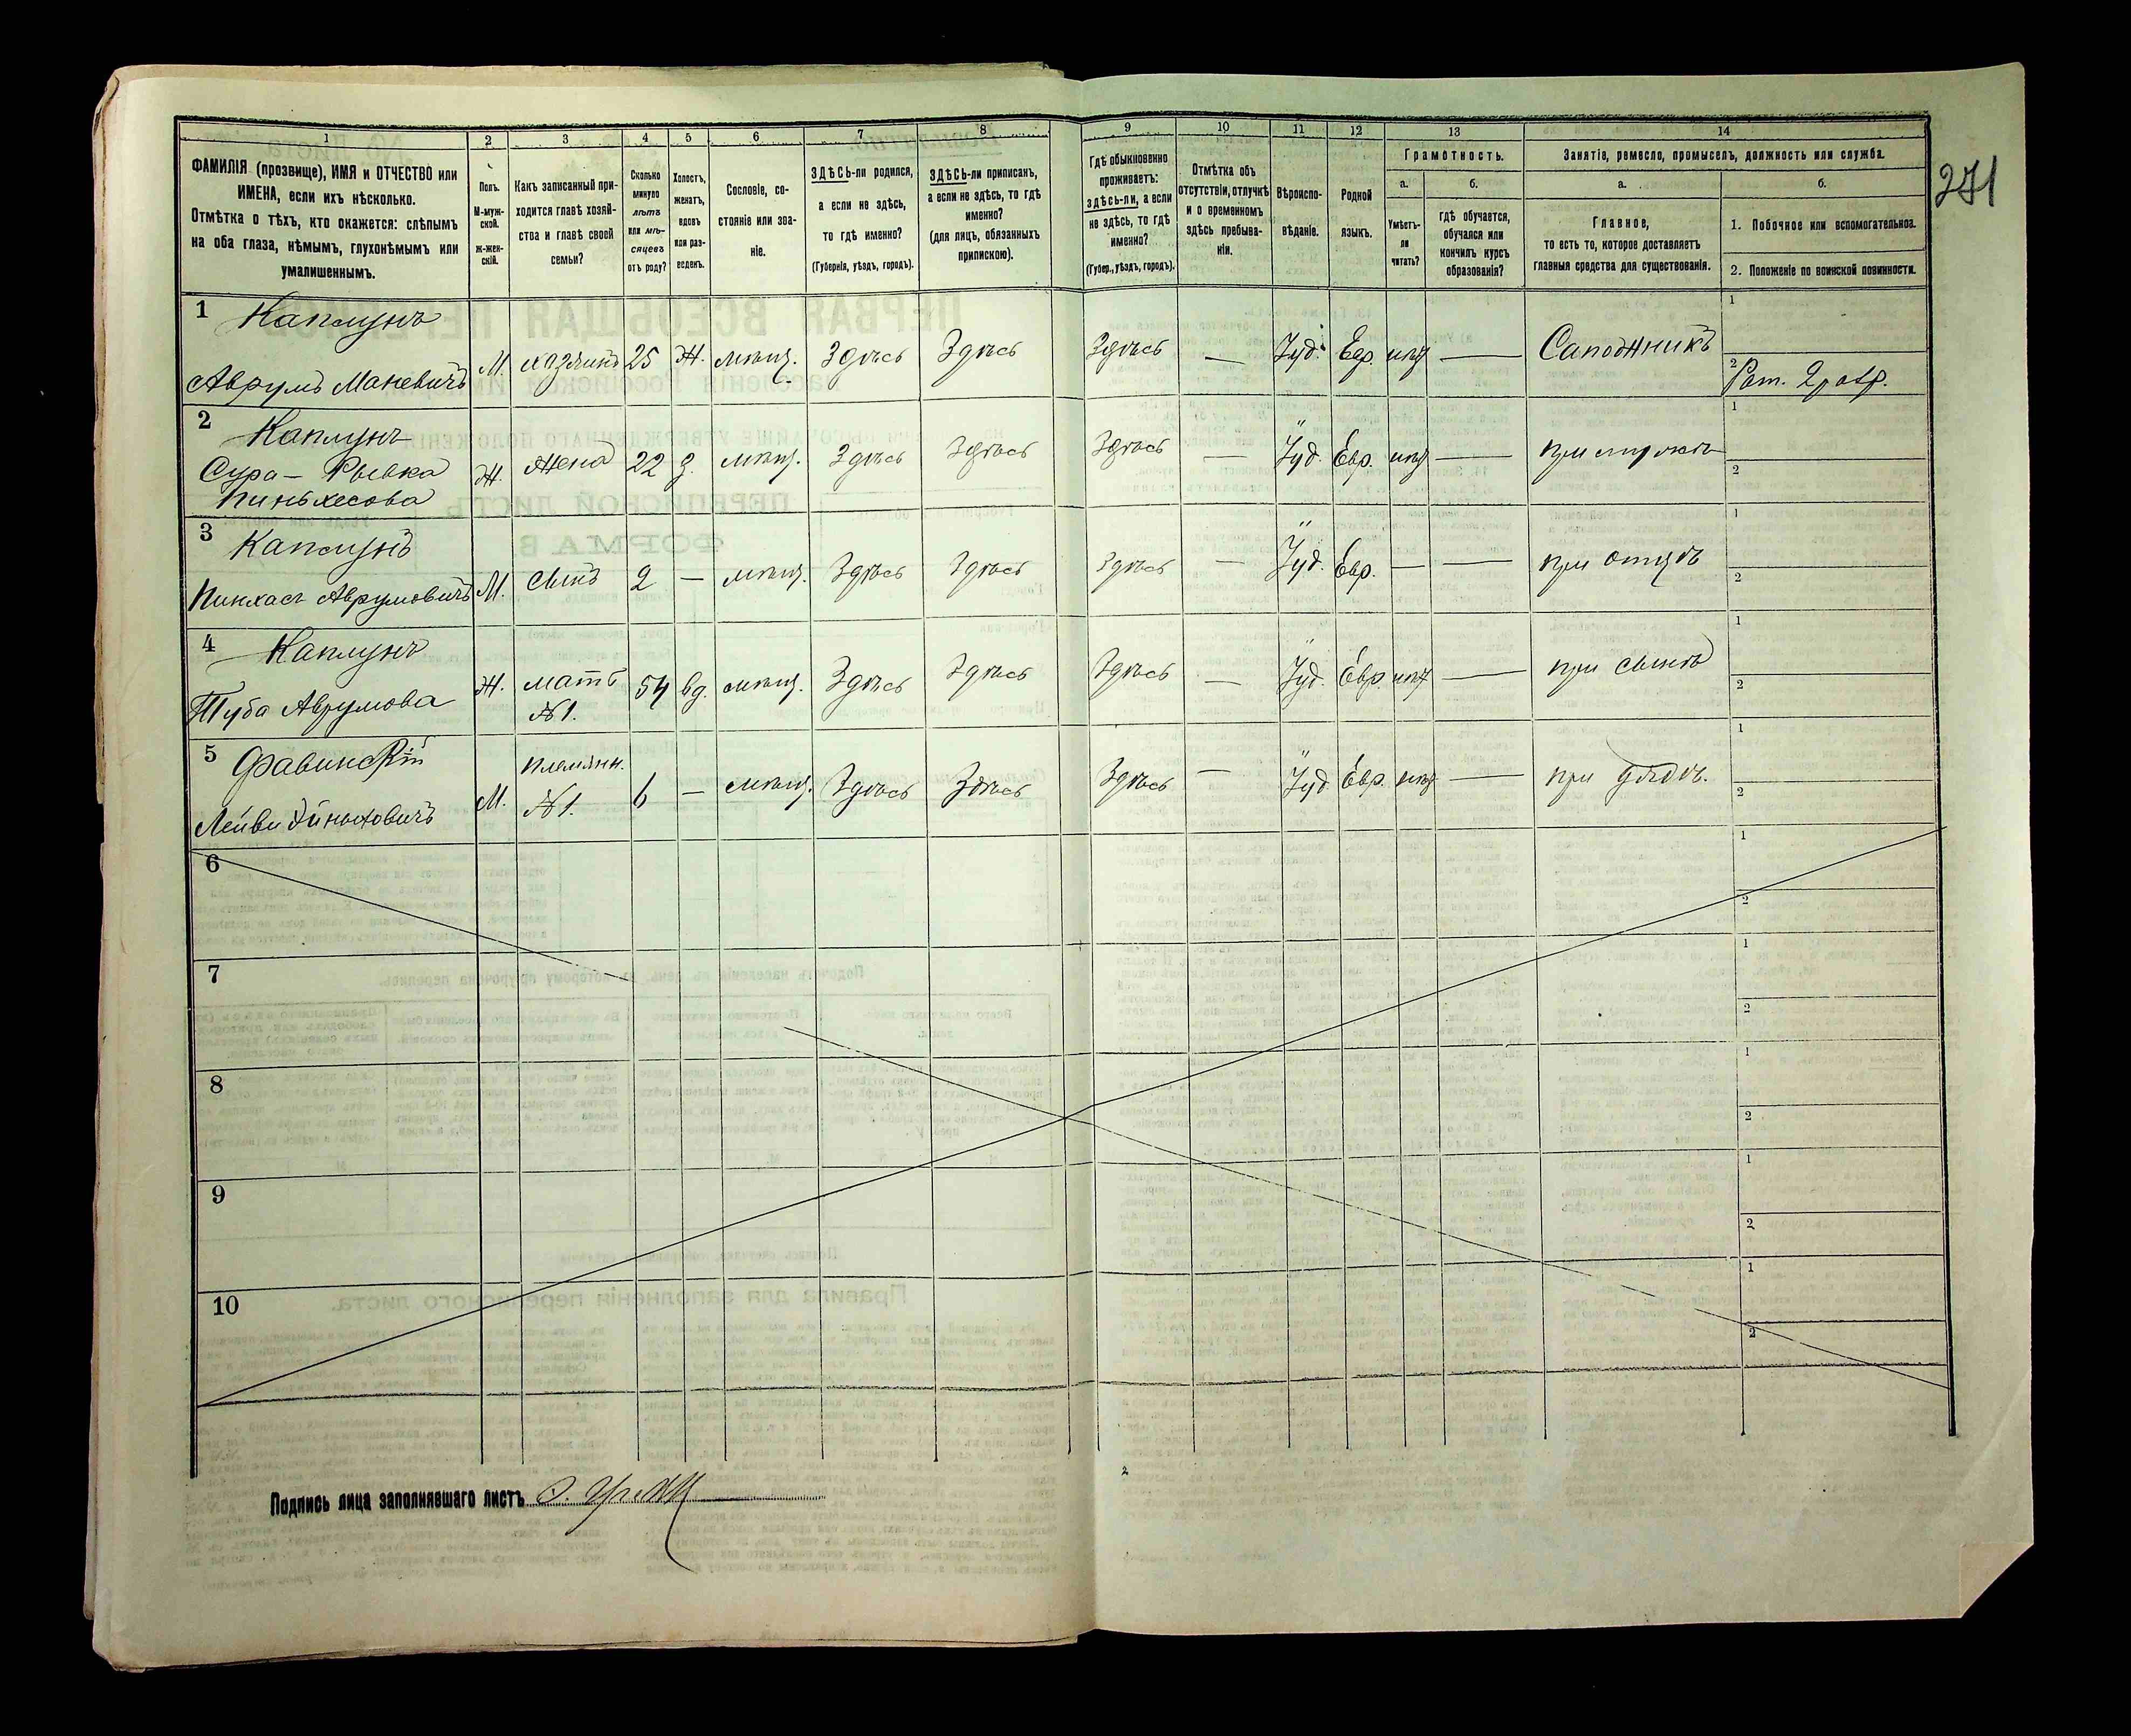 271
1
2
3
4
5
6
7
8
9
10
11
12
13
14
ФАМИЛІЯ (прозвище), ИМЯ и ОТЧЕСТВО или
ИМЕНА, если ихъ нѣсколько.
Отмѣтка о тѣхъ, кто окажется: слѣпымъ
на оба глаза, нѣмымъ, глухонѣмымъ или
умалишеннымъ.
Полъ.
М-муж-
ской.
ж-жен-
скій.
Какъ записанный при-
ходится главѣ хозяй-
ства и главѣ своей
семьи?
Сколько
минуло
лѣтъ
или мѣ-
сяцевъ
отъ роду?
Холостъ,
женатъ,
вдовъ
или раз-
веденъ.
Сословіе, со-
стояніе или зва-
ніе.
ЗДѢСЬ-ли родился,
а если не здѣсь,
то гдѣ именно?
(Губернія, уѣздъ, городъ).
ЗДѢСЬ-ли приписанъ,
а если не здѣсь, то гдѣ
именно?
(для лицъ, обязанныхъ
припискою).
Гдѣ обыкновенно
проживаетъ:
здѣсь-ли, а если
не здѣсь, то гдѣ
именно?
(Губер., уѣздъ, городъ).
Отмѣтка объ
отсутствіи, отлучкѣ
и о временномъ
здѣсь пребыва-
ніи.
Вѣроиспо-
вѣданіе.
Родной
языкъ.
Грамотность.
а.
б.
Умѣетъ-
ли
читать?
гдѣ обучается,
обучался или
кончилъ курсъ
образованія?
Занятіе, ремесло, промыселъ, должность или служба.
а.
б.
Главное,
то есть то, которое доставляетъ
главныя средства для существованія.
1. Побочное или вспомогательное.
2. Положеніе по воинской повинности.
1 Каплунъ
Аврумъ Маневичъ М. хазяинъ 25 Ж. мѣщ. Здѣсь Здѣсь Здѣсь — Іуд. Евр. нѣт — Сапожникъ
1
2 Рат. 2 раз.
2 Каплунъ
Сура - Рывка
Пиньхесова Ж. Жена 22 З. мѣщ. Здѣсь Здѣсь Здѣсь — Іуд. Евр. нѣт — при мужѣ
1
2
3 Каплунъ
Пинхасъ Аврумовичъ М. сынъ 2 — мѣщ. Здѣсь Здѣсь Здѣсь — Іуд. Евр. — — при отцѣ
1
2
4 Каплунъ
Туба Аврумова Ж. мать 54 вд. мѣщ. Здѣсь Здѣсь Здѣсь — Іуд. Евр. нѣт — при сынѣ
№1.
1
2
5 Фавинскій
Лейви М. племянн. 6 — мѣщ. Здѣсь Здѣсь Здѣсь — Іуд Евр. нѣт — при дядѣ.
№1.
1
2
6
1
2
7
1
2
8
1
2
9
1
2
10
1
2
Подпись лица заполнявшаго листъ
2